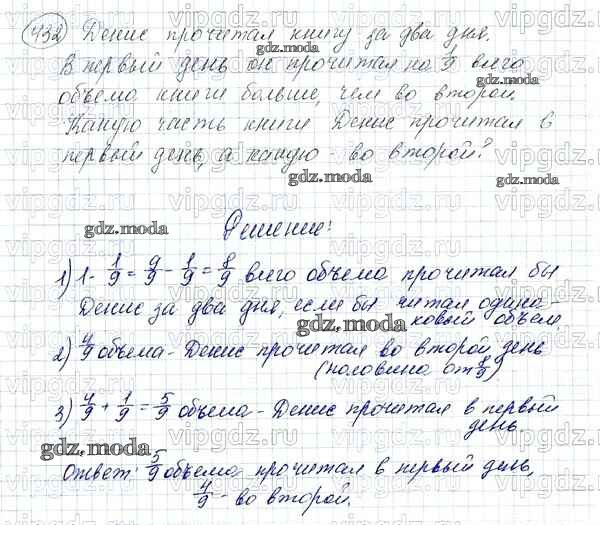 432) Денис прочитал книгу за два дня.
В первый день он прочитал на 1/9 всего
объема книги больше, чем во второй.
Какую часть книги Денис прочитал в
первый день, а какую - во второй?
Решение:
1) 1 - 1/9 = 9/9 - 1/9 = 8/9 всего объема прочитал бы
Денис за два дня, если бы читал одина-
ковый объем
2) 4/9 объема - Денис прочитал во второй день
(половина от 8/9)
3) 4/9 + 1/9 = 5/9 объема - Денис прочитал в первый
день.
Ответ: 5/9 объема прочитал в первый день,
4/9 - во второй.
gdz.moda
gdz.moda
gdz.moda
gdz.moda
gdz.moda
gdz.moda
vipgdz.ru